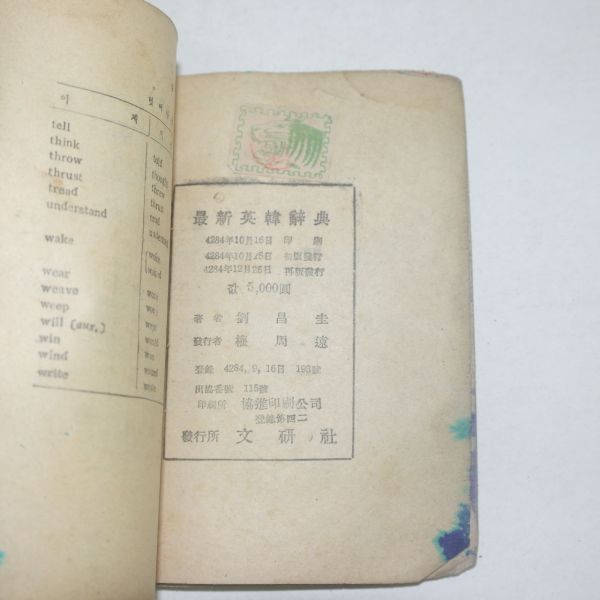 이 제
tell
think
throw
thrust
tread
understand
wake
wear
weave
weep
will (aur.)
win
wind
write
told
thought
threw
thrust
trod
最新英韓辭典
4284年10月16日 印刷
4284年10月25日 初版發行
4284年12月25日 再版發行
값 5,000圓
著者 劉昌圭
發行者 周遠
登錄 4284, 9, 16日 193號
出協番號 115號
印刷所 協進印刷公司
登錄第四二
發行所 文研社